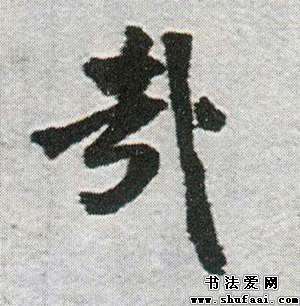 卦
书法爱网
www.shufaai.com